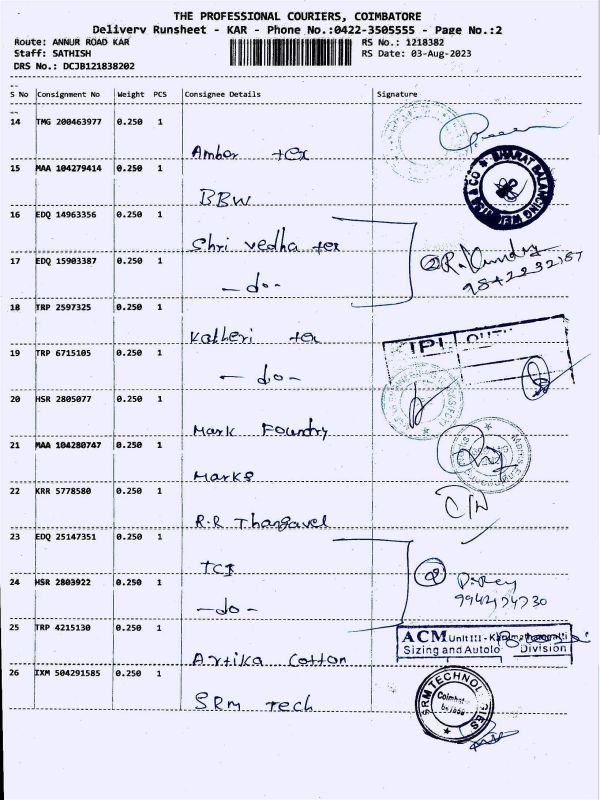 THE PROFESSIONAL COURIERS, COIMBATORE
Delivery Runsheet - KAR - Phone No.:0422-3505555 - Page No.:2
Route: ANNUR ROAD KAR RS No.: 1218382
Staff: SATHISH RS Date: 03-Aug-2023
DRS No.: DCJB121838202
--
S No Consignment No Weight PCS Consignee Details Signature
--
14 TMG 200463977 0.250 1
Amber tex
15 MAA 104279414 0.250 1
BHARAT BALANCING & CO
BBW
16 EDQ 14963356 0.250 1
Shri vedha tex
17 EDQ 15903387 0.250 1
② 9842232187
-do-
18 TRP 2597325 0.250 1
Katheri tex
19 TRP 6715105 0.250 1
-do-
20 HSR 2805077 0.250 1
Mark Foundry
21 MAA 104280747 0.250 1
Marks
22 KRR 5778580 0.250 1
R.R Thangavel
23 EDQ 25147351 0.250 1
TCI
24 HSR 2803922 0.250 1
-do-
25 TRP 4215130 0.250 1
ACM Unit III -
Sizing and Autolo Division
Artika Cotton
26 IXM 504291585 0.250 1
SRM TECHNOLOGIES
SRM Tech